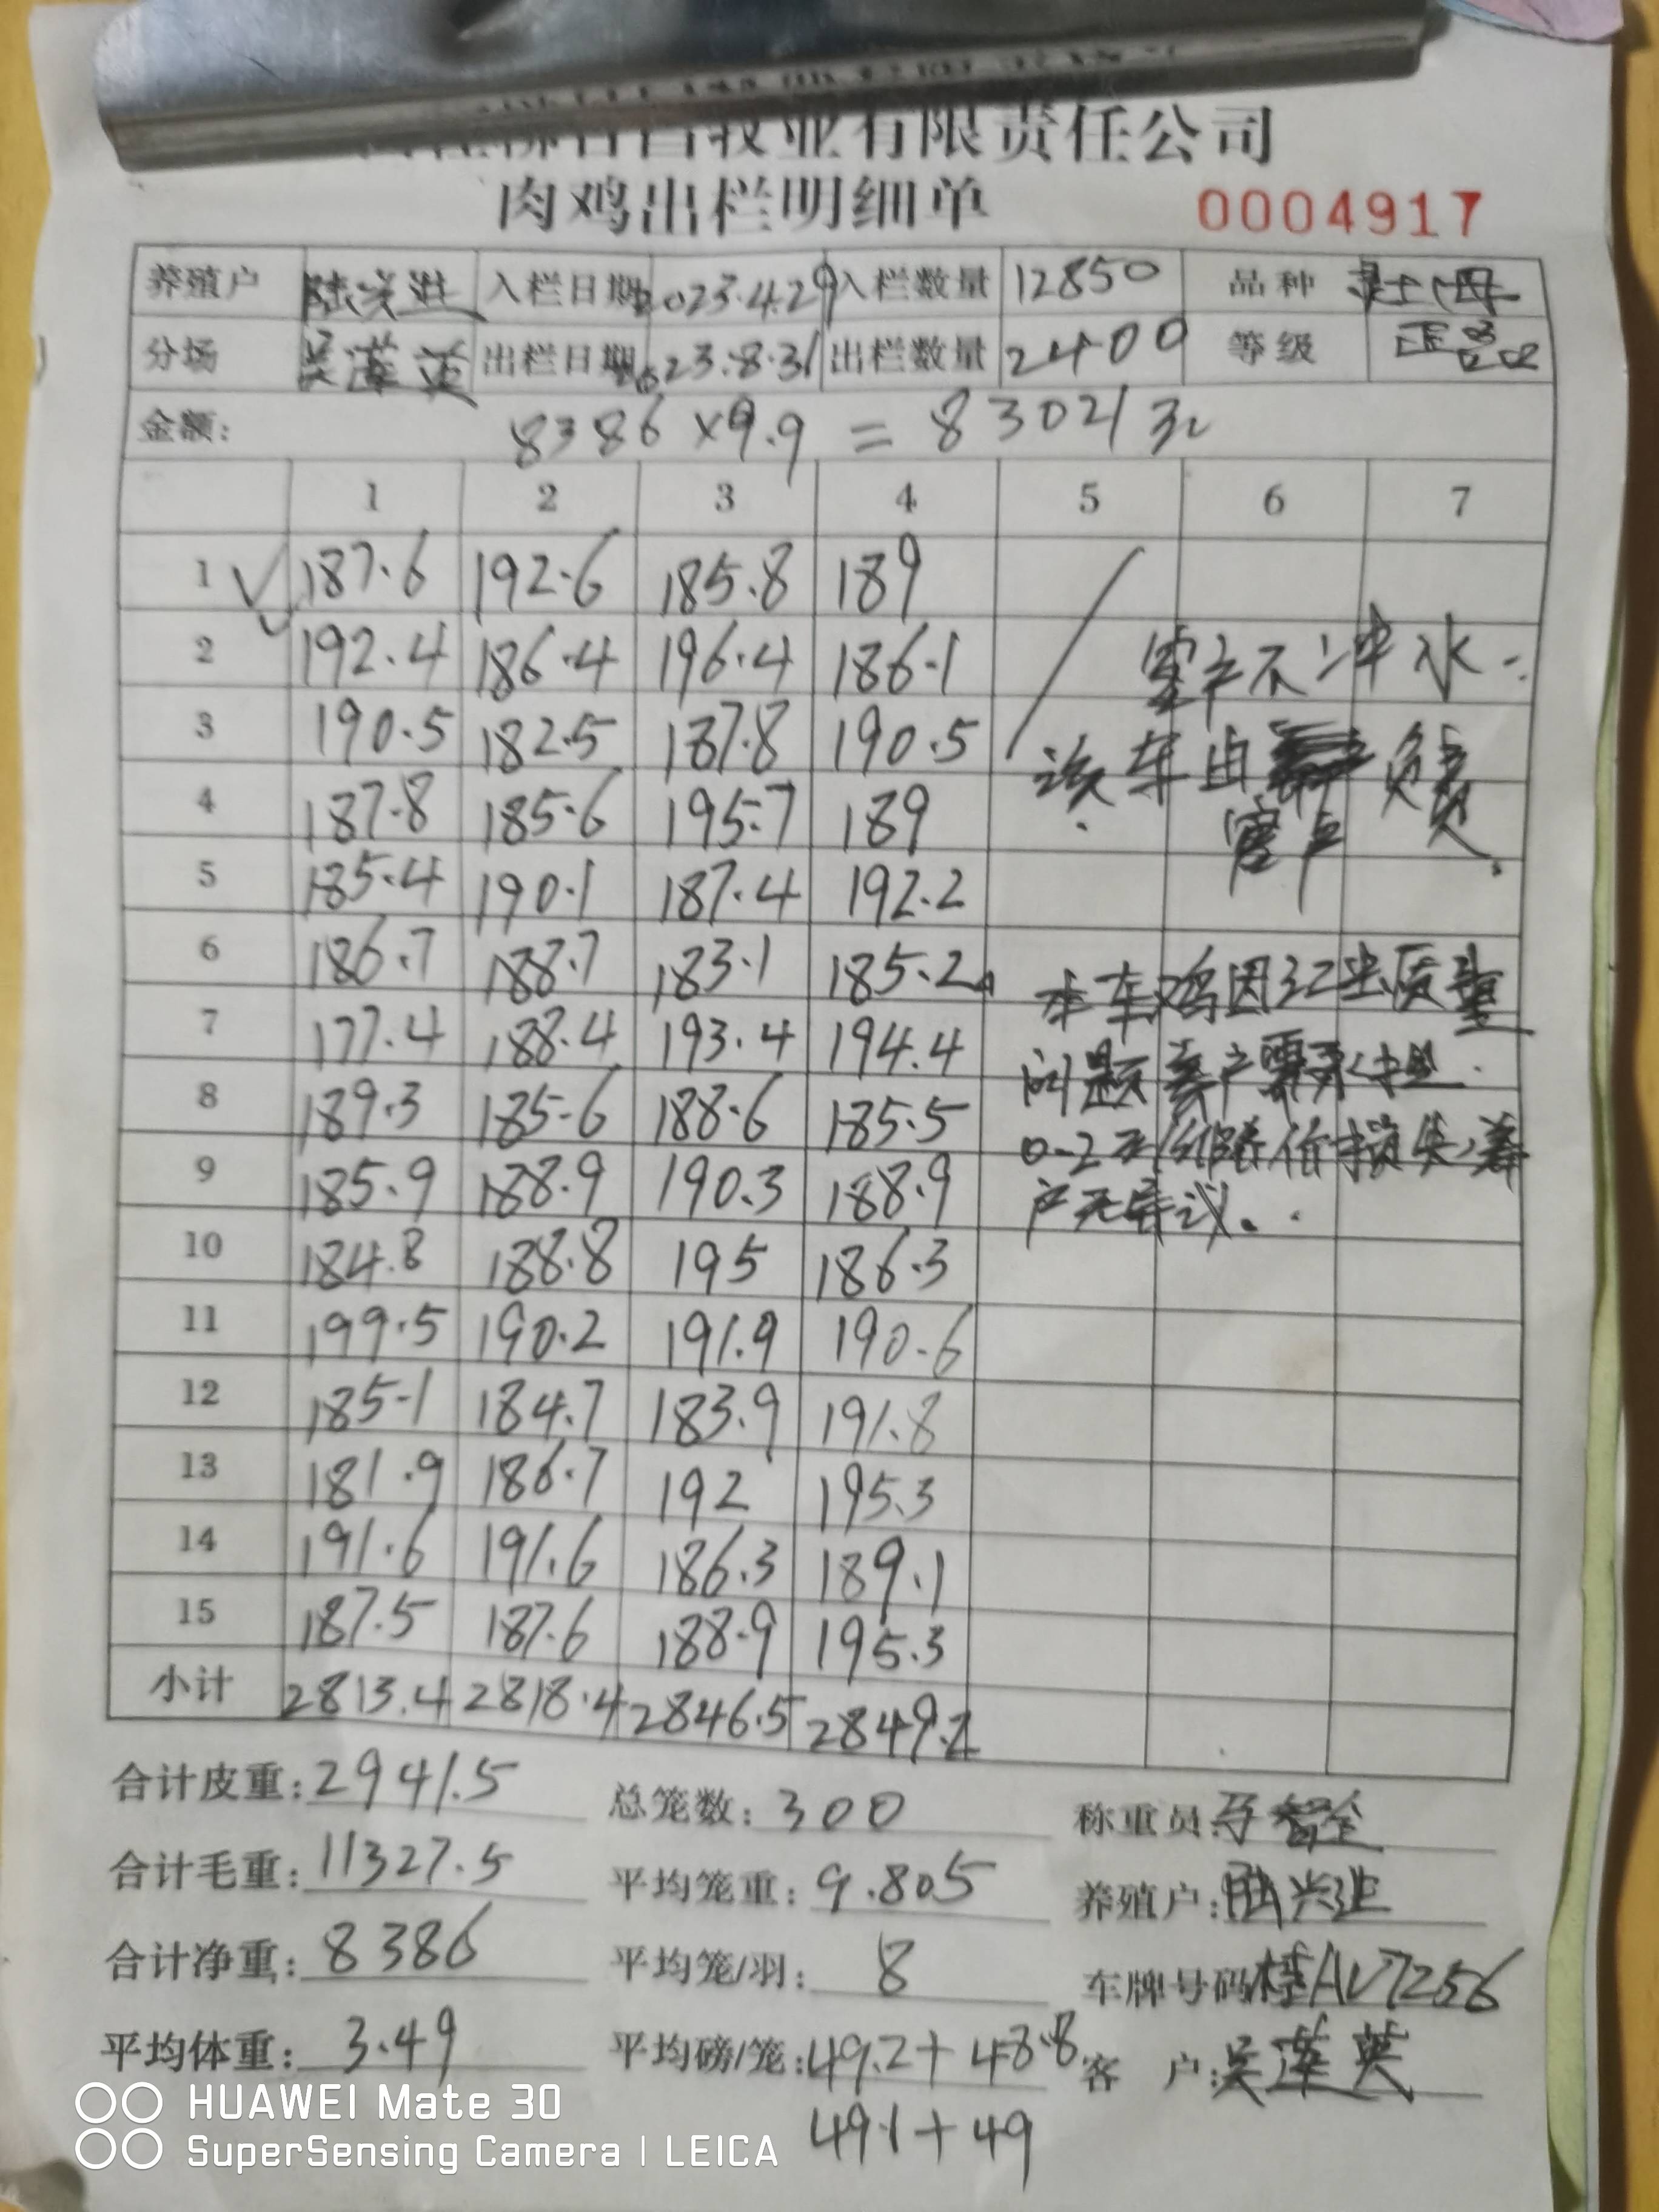 牧业有限责任公司
肉鸡出栏明细单 0004917
养殖户 陆兴进 入栏日期 2023.4.29 入栏数量 12850 品种 土母
分场 吴莲英 出栏日期 2023.8.31 出栏数量 2400 等级 正品
金额: 8386×9.9=83021元
1 2 3 4 5 6 7
1 187.6 192.6 185.8 189
2 192.4 186.4 196.4 186.1 客户不冲水.
3 190.5 182.5 187.8 190.5 该车由 负责
4 187.8 185.6 195.7 189 客户
5 185.4 190.1 187.4 192.2
6 186.7 188.7 183.1 185.2 本车鸡因 质量
7 177.4 188.4 193.4 194.4 问题养户需承担
8 189.3 185.6 188.6 185.5 0-2元 降价损失,养
9 185.9 188.9 190.3 188.9 户无异议。
10 184.8 188.8 195 186.3
11 199.5 190.2 191.9 190.6
12 185.1 184.7 183.9 191.8
13 181.9 186.7 192 195.3
14 191.6 191.6 186.3 189.1
15 187.5 187.6 188.9 195.3
小计 2813.4 2818.4 2846.5 2849.2
合计皮重: 2941.5 总笼数: 300 称重员:
合计毛重: 11327.5 平均笼重: 9.805 养殖户: 陆兴进
合计净重: 8386 平均笼/羽: 8 车牌号码 桂AV7256
平均体重: 3.49 平均磅/笼: 49.2+48.8 客户: 吴莲英
49.1+49
HUAWEI Mate 30
SuperSensing Camera | LEICA